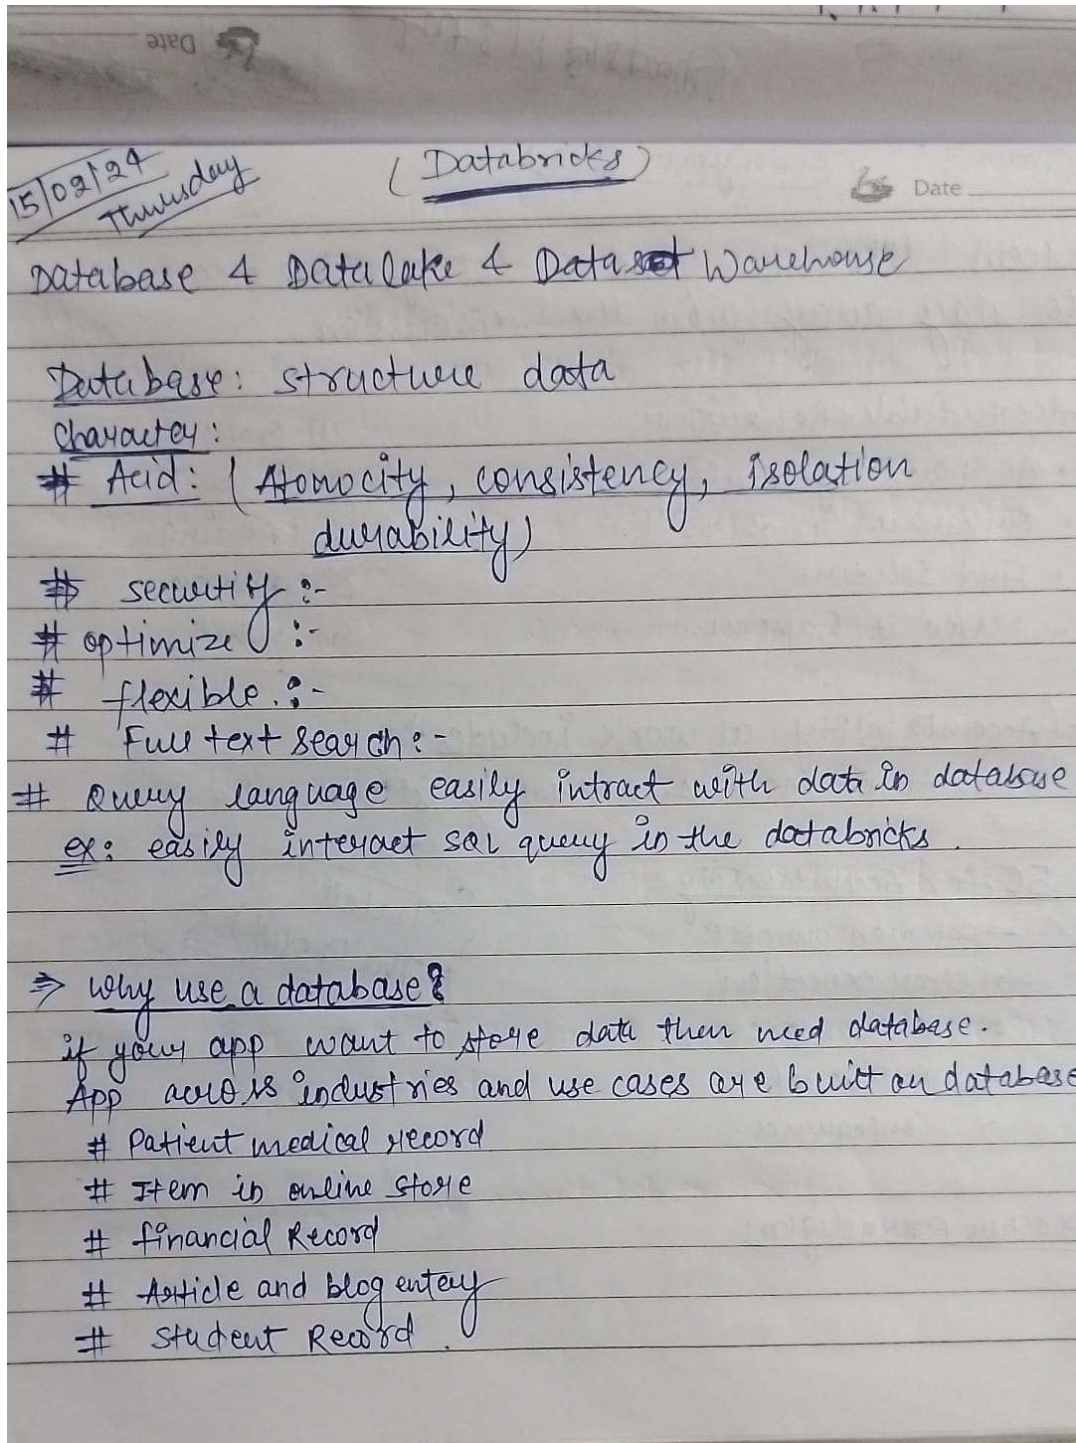 Date
15/02/24
Thursday
(Databricks)
Date
Database & Data lake & Data Warehouse
Database: structure data
Character:
# Acid: (Atomocity, consistency, isolation
durability)
# security :-
# optimize :-
# flexible. :-
# Full text search :-
# Query language easily intract with data in database
ex: easily interact SQL query in the databricks.
⇒ Why use a database?
if your app want to store data then need database.
App across industries and use cases are built on database
# Patient medical record
# Item in online store
# financial Record
# Article and blog entry
# Student Record.